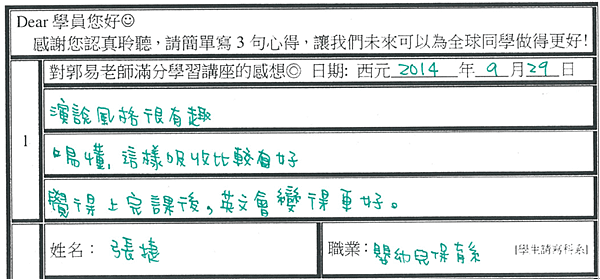 Dear 學員您好☺
感謝您認真聆聽，請簡單寫 3 句心得，讓我們未來可以為全球同學做得更好!
對郭易老師滿分學習講座的感想◎ 日期: 西元 2014 年 9 月 29 日
演說風格很有趣
1
易懂, 這樣吸收比較有好
覺得上完課後，英文會變得更好。
姓名： 張捷
職業: 嬰幼兒保育系 [學生請寫科系]